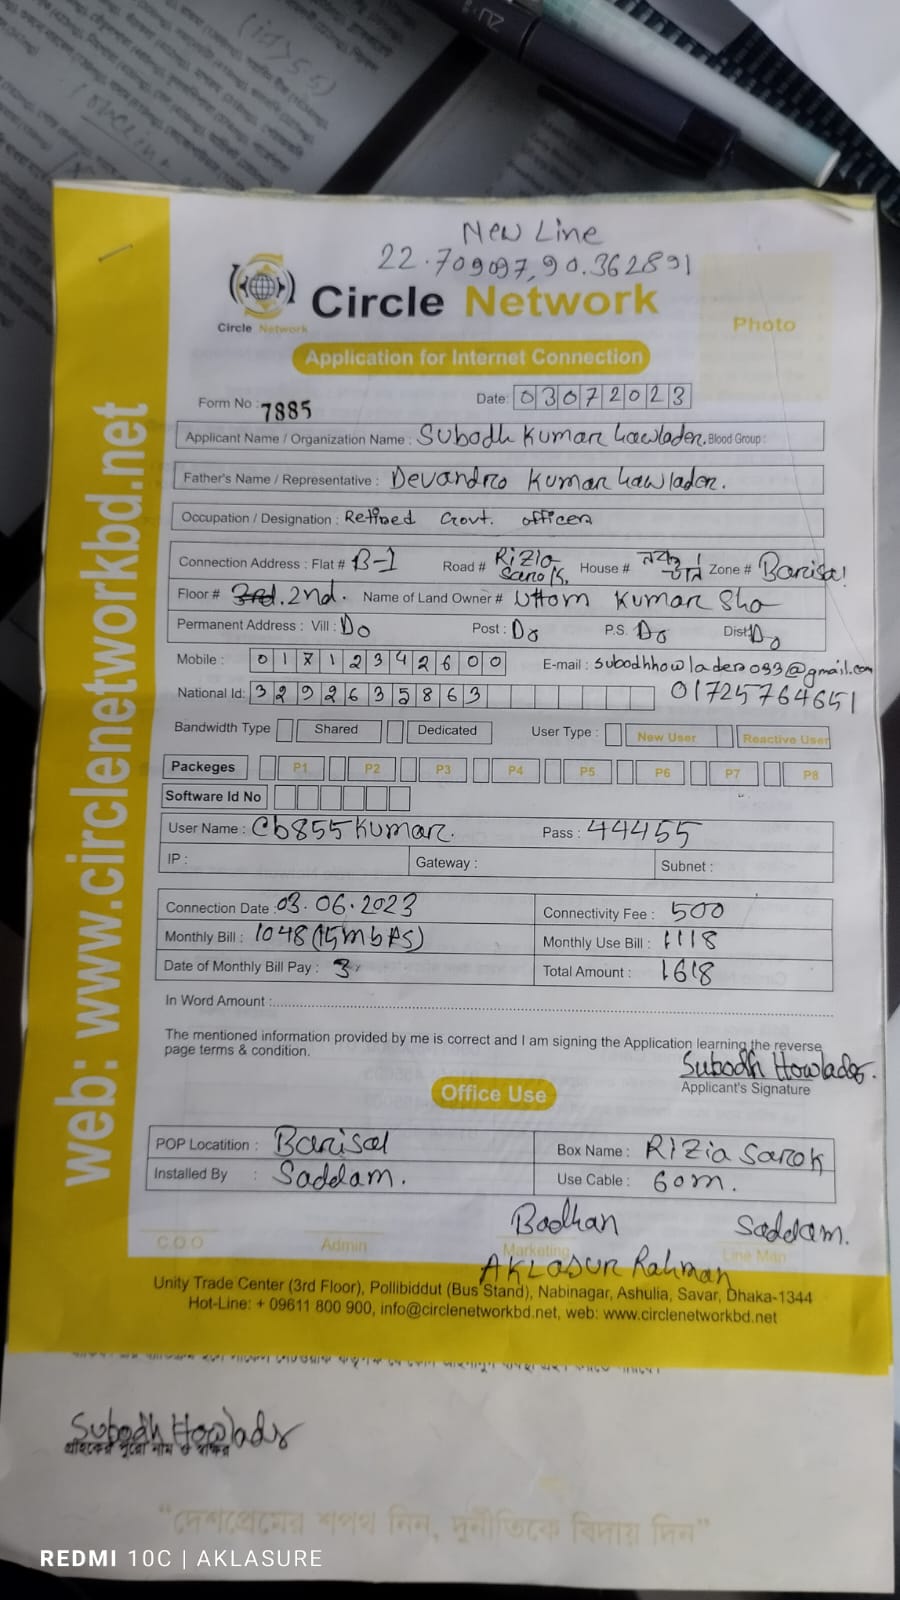 New Line
22.709097,90.362891
Circle Network
Circle Network
Photo
Application for Internet Connection
Form No : 7885
Date: 03072023
Applicant Name / Organization Name : Subodh Kumar hawlader. Blood Group :
Father's Name / Representative : Devandro Kumar hawlader.
Occupation / Designation : Retired Govt. officer
Connection Address : Flat # B-1 Road # Rizia Sarok, House # Zone # Barisal
Floor # 3rd. 2nd. Name of Land Owner # Uttom Kumar Sha
Permanent Address : Vill : Do Post : Do P.S. Do Dist: Do
Mobile : 01712342600 E-mail : subodhhowlader033@gmail.com
National Id: 3292635863 01725764651
Bandwidth Type Shared Dedicated User Type : New User Reactive User
Packeges P1 P2 P3 P4 P5 P6 P7 P8
Software Id No
User Name : Cb855kumar. Pass : 44455
IP : Gateway : Subnet :
Connection Date : 03.06.2023 Connectivity Fee : 500
Monthly Bill : 1048 (15mbps) Monthly Use Bill : 1118
Date of Monthly Bill Pay : 3 Total Amount : 1618
In Word Amount :
The mentioned information provided by me is correct and I am signing the Application learning the reverse
page terms & condition.
Subodh Howlader.
Applicant's Signature
Office Use
POP Locatition : Barisal Box Name : Rizia Sarok
Installed By : Saddam. Use Cable : 60m.
Badhan Saddam.
C.O.O Admin Marketing Line Man
AKLASUR Rahman
Unity Trade Center (3rd Floor), Pollibiddut (Bus Stand), Nabinagar, Ashulia, Savar, Dhaka-1344
Hot-Line: + 09611 800 900, info@circlenetworkbd.net, web: www.circlenetworkbd.net
web: www.circlenetworkbd.net
Subodh Howlader
গ্রাহকের পুরো নাম ও স্বাক্ষর
"দেশপ্রেমের শপথ নিন, দুর্নীতিকে বিদায় দিন"
REDMI 10C | AKLASURE